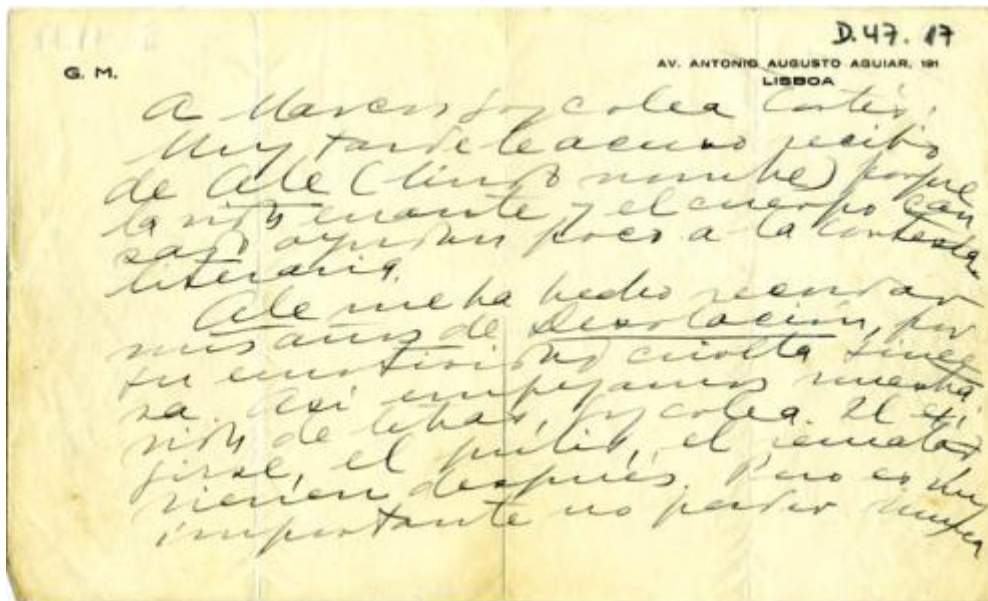 D.47.17
G. M.
AV. ANTONIO AUGUSTO AGUIAR, 191
LISBOA
A Marcos Goycolea Cortés:
Muy tarde le acuso recibo
de Ale (lindo nombre) porque
la vida errante y el cuerpo can
sado ayudan poco a la cortesía
literaria.
Ale me ha hecho recordar
mis años de Desolación, por
su emotividad
ra. Así empezamos nuestra
vida de letras, Goycolea. El exi
girse, el pulir, el
vienen después. Pero es muy
importante no perder nunca